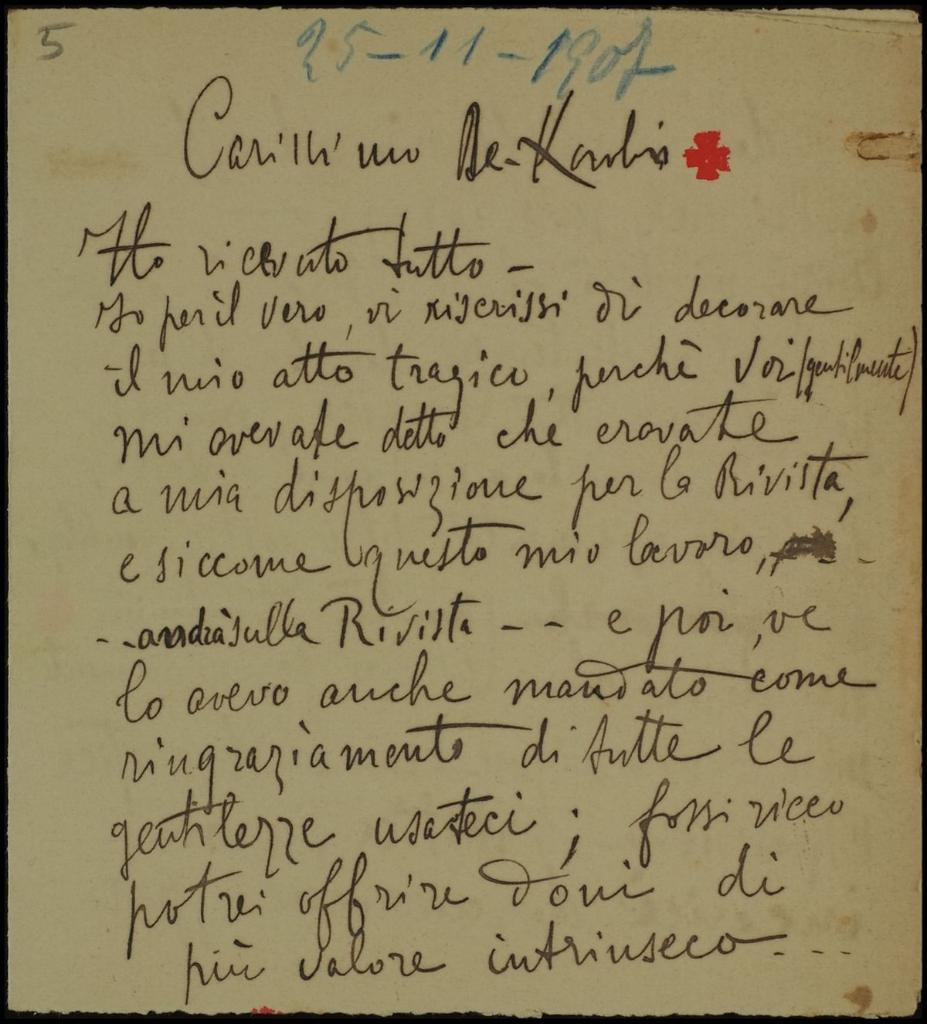 5
25-11-1907
Carissimo De-Karolis
Ho ricevuto tutto -
Io per il vero, vi riscrissi di decorare
il mio atto tragico, perchè Voi (gentilmente)
mi avevate detto che eravate
a mia disposizione per la Rivista,
e siccome questo mio lavoro, - -
- - andrà sulla Rivista - - e poi, ve
lo avevo anche mandato come
ringraziamento di tutte le
gentilezze usateci; fossi ricco
potrei offrire doni di
più valore intrinseco - - -